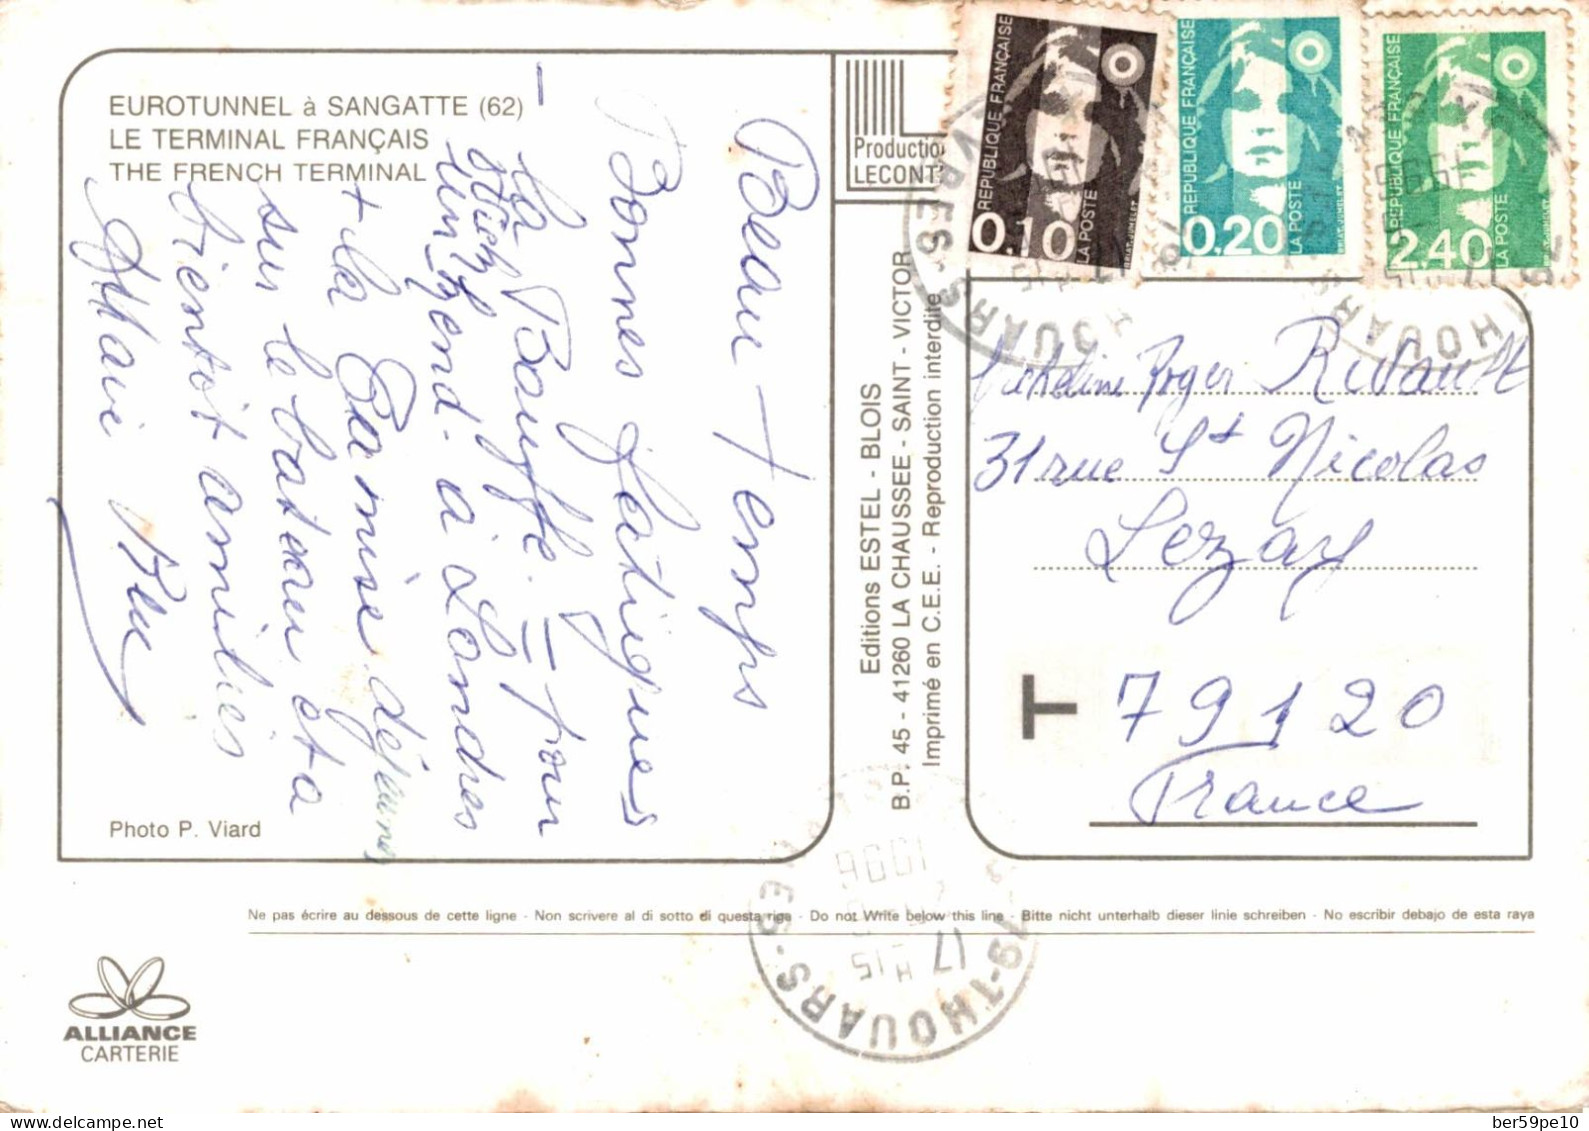 EUROTUNNEL à SANGATTE (62)
LE TERMINAL FRANÇAIS
THE FRENCH TERMINAL
Beau temps
Bonnes
La Bouffe = pour
un à Londres
+ la
sur le bateau
bientôt amitiés
Photo P. Viard
Productio
LECONT
Editions ESTEL - BLOIS
B.P. 45 - 41260 LA CHAUSSEE - SAINT - VICTOR
Imprimé en C.E.E. - Reproduction interdite
REPUBLIQUE FRANÇAISE
0,10
LA POSTE
REPUBLIQUE FRANÇAISE
0,20
LA POSTE
REPUBLIQUE FRANÇAISE
2,40
LA POSTE
Roger Rivault
31 rue St Nicolas
Lezay
T 79120
France
Ne pas écrire au dessous de cette ligne - Non scrivere al di sotto di questa riga - Do not Write below this line - Bitte nicht unterhalb dieser linie schreiben - No escribir debajo de esta raya
H15
17
1996
THOUARS
ALLIANCE
CARTERIE
delcampe.net
ber59pe10